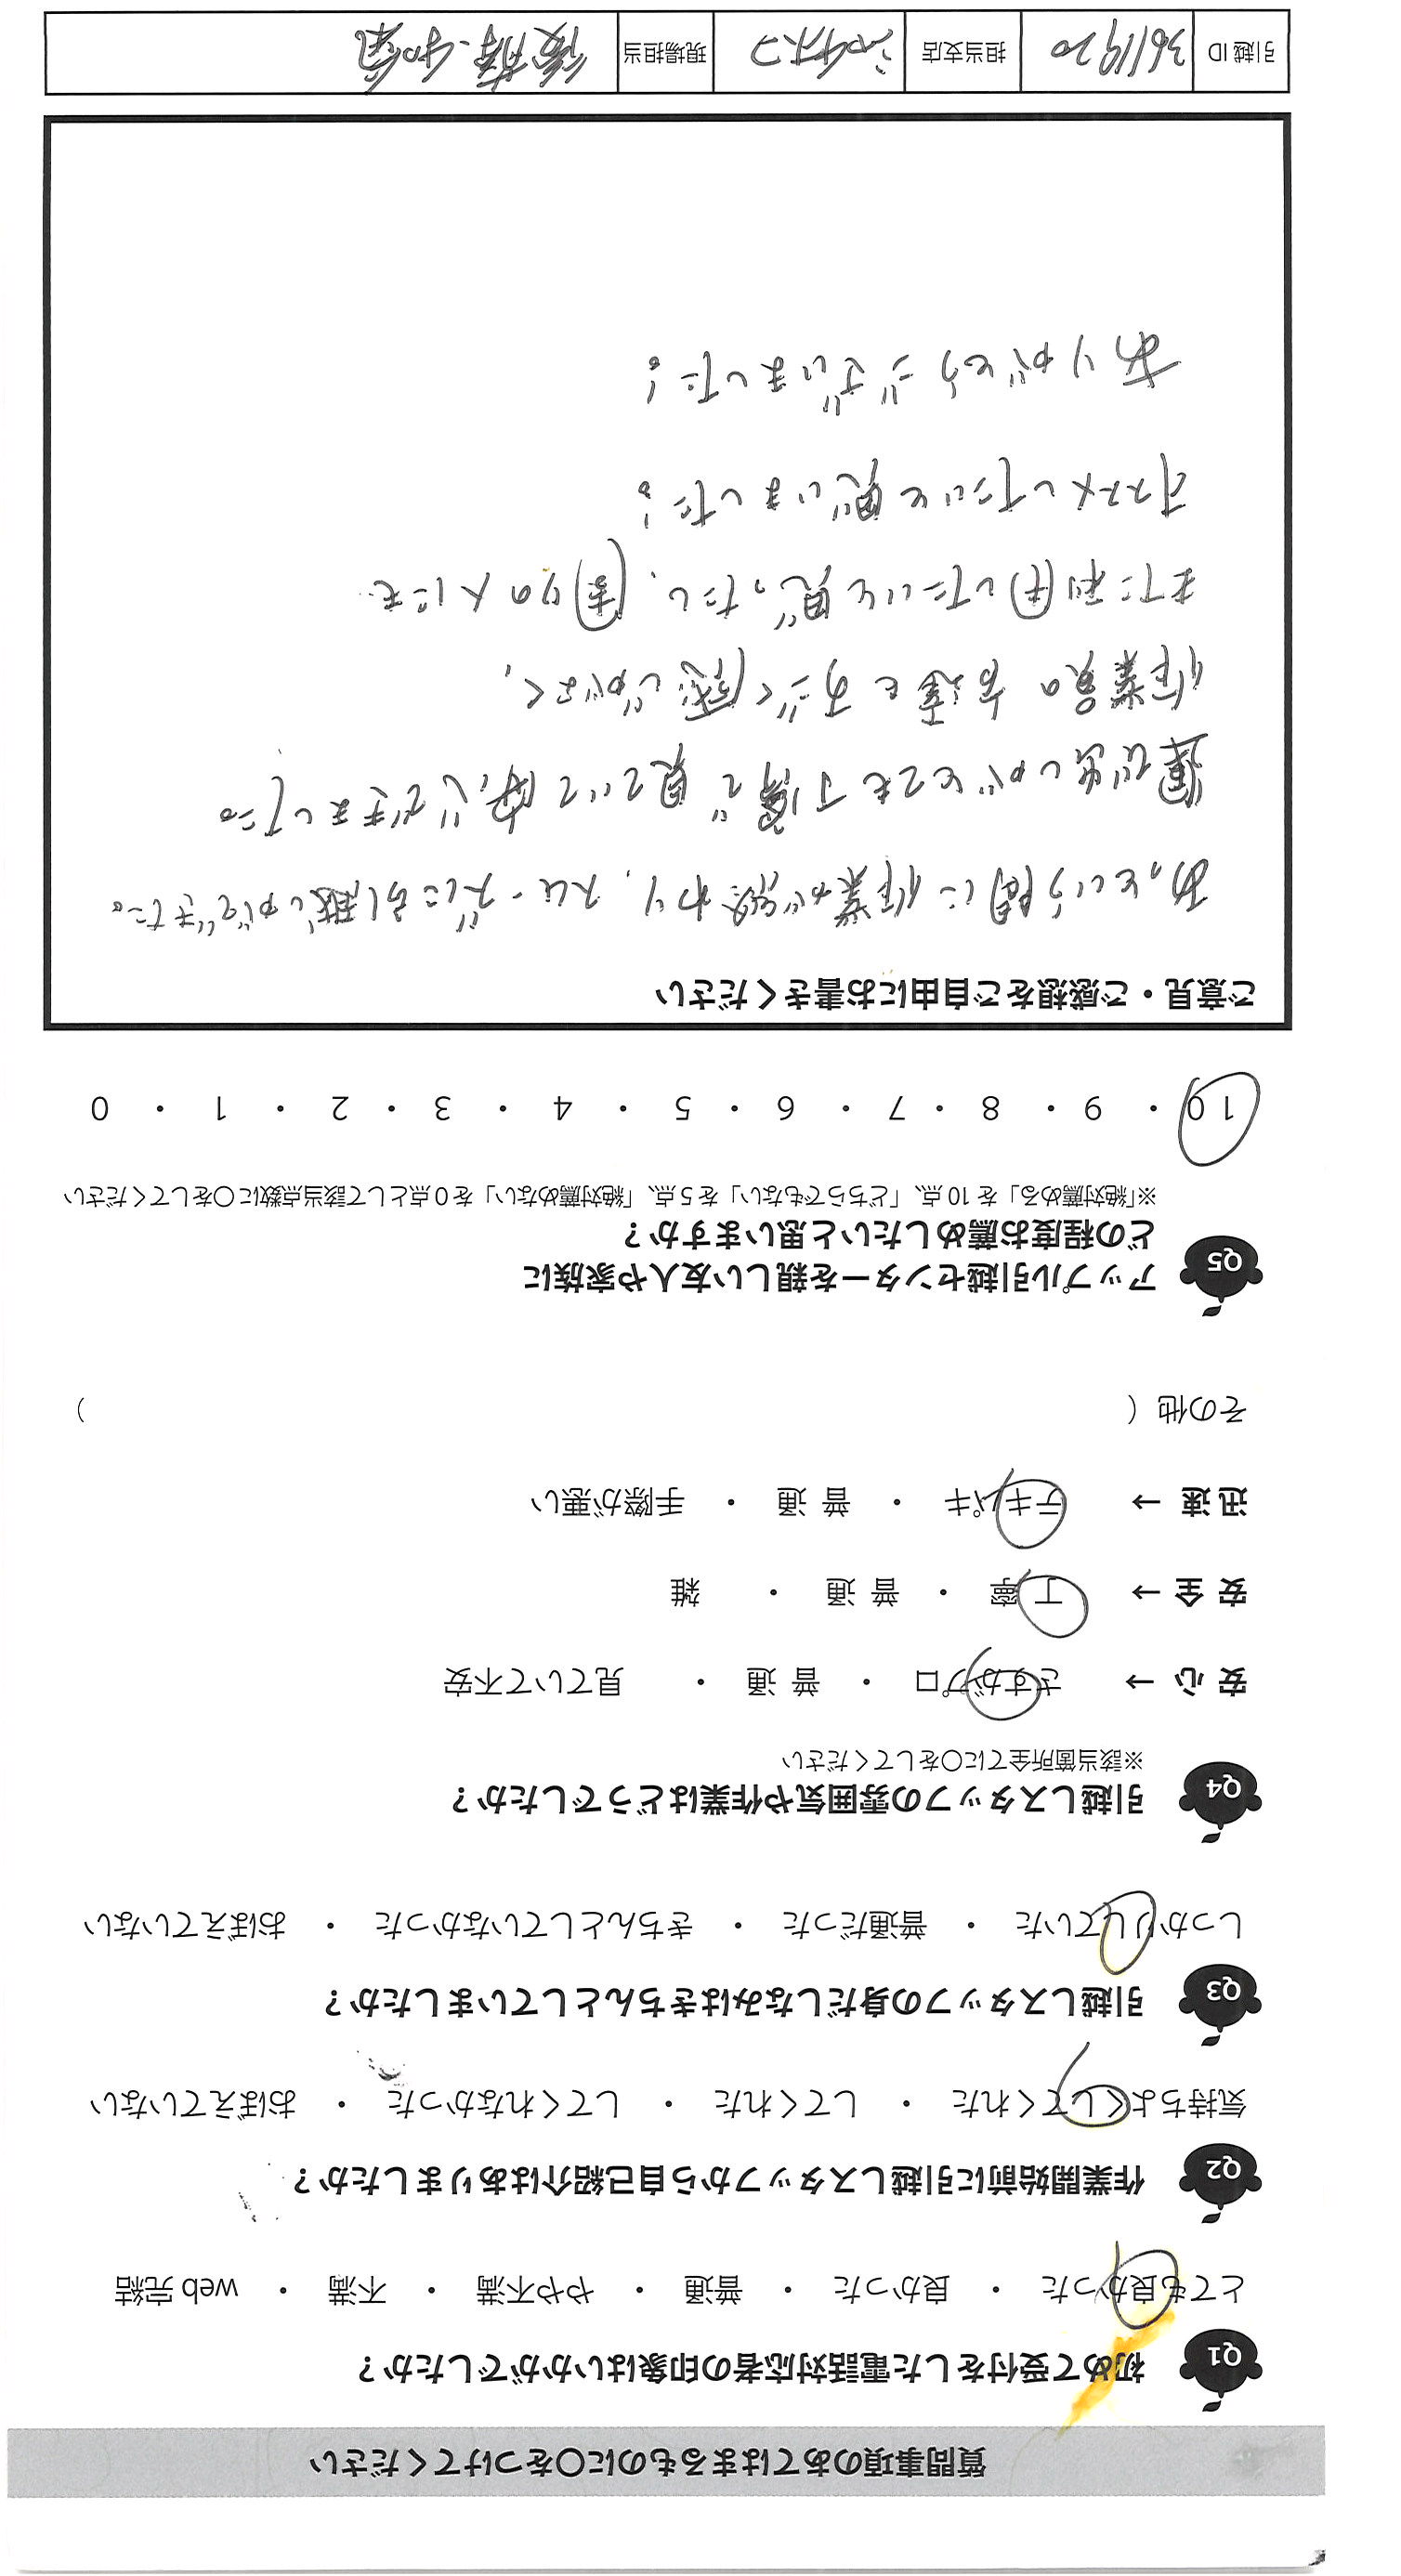 質問事項のあてはまるものに〇をつけてください
Q1 初めて受付をした電話対応者の印象はいかがでしたか？
とても良かった ・ 良かった ・ 普通 ・ やや不満 ・ 不満 ・ web 完結
Q2 作業開始前に引越しスタッフから自己紹介はありましたか？
気持ちよくしてくれた ・ してくれた ・ してくれなかった ・ おぼえていない
Q3 引越しスタッフの身だしなみはきちんとしていましたか？
しっかりしていた ・ 普通だった ・ きちんとしていなかった ・ おぼえていない
Q4 引越しスタッフの雰囲気や作業はどうでしたか？
※該当箇所全てに〇をしてください
安 心 → さすがプロ ・ 普 通 ・ 見ていて不安
安 全 → 丁 寧 ・ 普 通 ・ 雑
迅 速 → テキパキ ・ 普 通 ・ 手際が悪い
その他（ ）
Q5 アップル引越センターを親しい友人や家族に
どの程度お薦めしたいと思いますか？
※「絶対薦める」を 10 点、「どちらでもない」を 5 点、「絶対薦めない」を 0 点として該当点数に〇をしてください
10 ・ 9 ・ 8 ・ 7 ・ 6 ・ 5 ・ 4 ・ 3 ・ 2 ・ 1 ・ 0
ご意見・ご感想をご自由にお書きください
あっという間に作業が終わり、スムーズにお引越しができた。
運び出しがとても丁寧で見ていて安心できました。
作業員の方達もすごく感じがよく、
また利用したいと思ったし、周りの人にも
オススメしたいと思いました！
ありがとうございました！
引越 ID 3611920 担当支店 現場担当